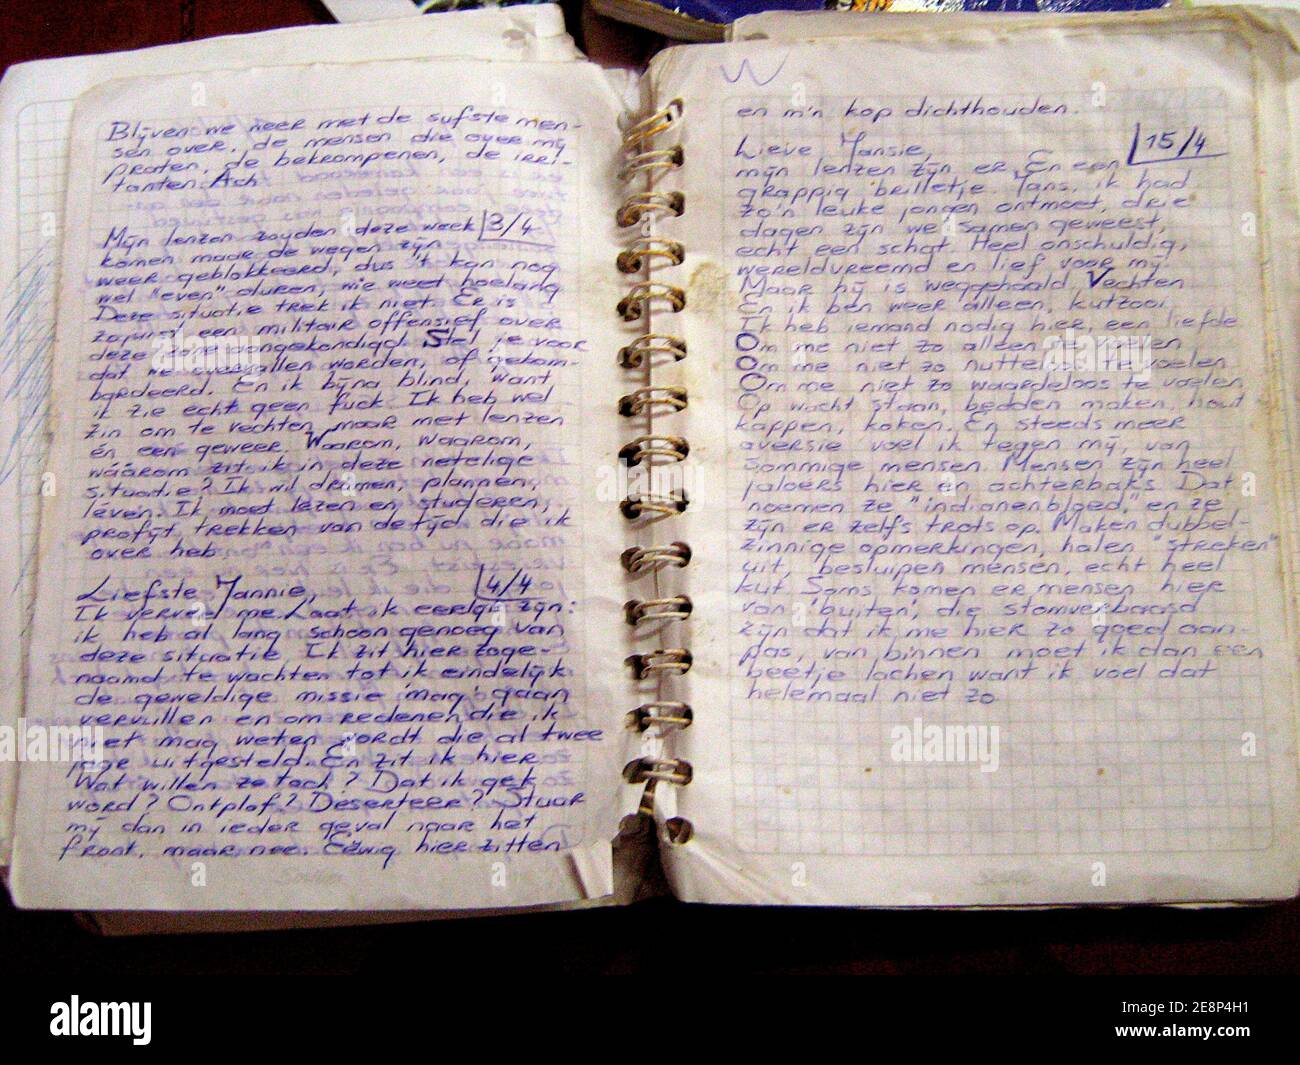 Blijven we neer met de sufste men-
sen over, de mensen die over mij
praten, de bekrompenen, de irri-
tanten. Ach.
3/4
Mijn lenzen zouden deze week
komen maar de wegen zijn
weer geblokkeerd, dus 't kan nog
wel "even" duren, wie weet hoelang
Deze situatie trek ik niet. Er is
zojuist een militair offensief over
deze zone aangekondigd. Stel je voor
dat we overvallen worden, of gebom-
bardeerd. En ik bijna blind, want
ik zie echt geen fuck. Ik heb wel
zin om te vechten maar met lenzen
én een geweer. Waarom, waarom,
wáárom zit ik in deze netelige
situatie? Ik wil dromen, plannen,
leven. Ik moet lezen en studeren,
profijt trekken van de tijd die ik
over heb.
4/4
Liefste Jannie,
Ik verveel me. Laat ik eerlijk zijn:
ik heb al lang schoon genoeg van
deze situatie. Ik zit hier zoge-
naamd te wachten tot ik eindelijk
de geweldige missie 'mag' gaan
vervullen en om redenen die ik
niet mag weten wordt die al twee
jaar uitgesteld. En zit ik hier
Wat willen ze toch? Dat ik gek
word? Ontplof? Deserteer? Stuur
mij dan in ieder geval naar het
front, maar nee. Eeuwig hier zitten
en m'n kop dichthouden.
15/4
Lieve Jansie,
mijn lenzen zijn er. En een
grappig 'brilletje. Jans, ik had
zo'n leuke jongen ontmoet, drie
dagen zijn we samen geweest,
echt een schat. Heel onschuldig,
wereldvreemd en lief voor mij.
Maar hij is weggehaald. Vechten
En ik ben weer alleen, kutzooi
Ik heb iemand nodig hier, een liefde
Om me niet zo alleen te voelen
Om me niet zo nutteloos te voelen
Om me niet zo waardeloos te voelen
Op wacht staan, bedden maken, hout
kappen, koken. En steeds meer
aversie voel ik tegen mij, van
sommige mensen. Mensen zijn heel
jaloers hier en achterbaks. Dat
noemen ze "indianenbloed," en ze
zijn er zelfs trots op. Maken dubbel-
zinnige opmerkingen, halen "streken"
uit, besluipen mensen, echt heel
kut. Soms komen er mensen hier
van 'buiten', die stomverbaasd
zijn dat ik me hier zo goed aan-
pas, van binnen moet ik dan een
beetje lachen want ik voel dat
helemaal niet zo.
alamy
Image ID: 2E8P4H1
www.alamy.com